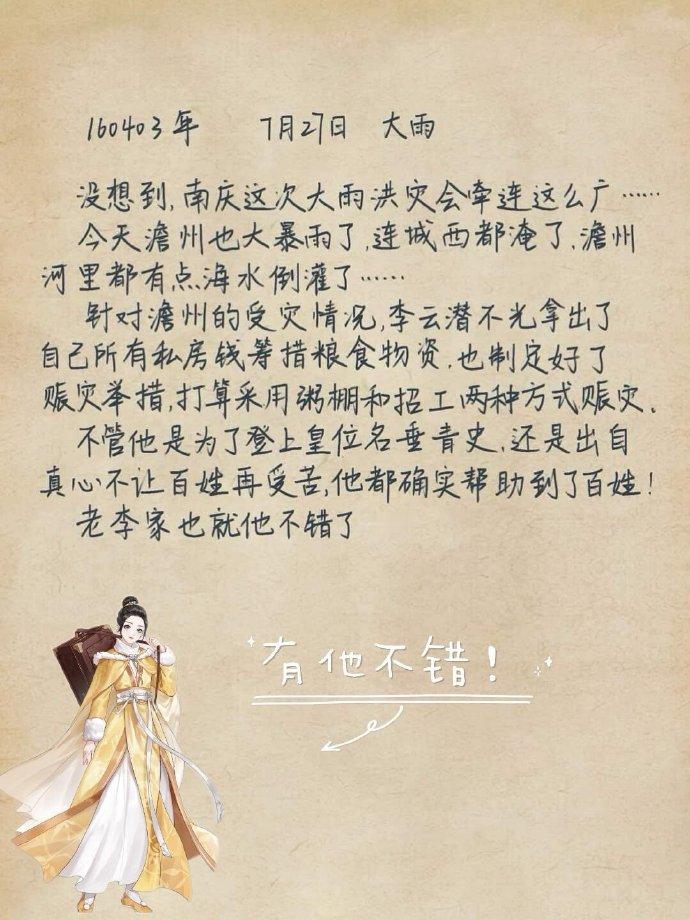 160403年 7月27日 大雨
没想到,南庆这次大雨洪灾会牵连这么广……
今天澹州也大暴雨了,连城西都淹了,澹州
河里都有点海水倒灌了……
针对澹州的受灾情况,李云潜不光拿出了
自己所有私房钱筹措粮食物资,也制定好了
赈灾举措,打算采用粥棚和招工两种方式赈灾。
不管他是为了登上皇位名垂青史,还是出自
真心不让百姓再受苦,他都确实帮助到了百姓!
老李家也就他不错了
有他不错!